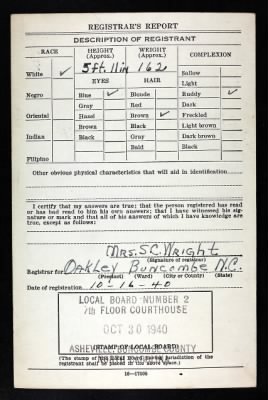 REGISTRAR'S REPORT
DESCRIPTION OF REGISTRANT
RACE HEIGHT (Approx.) WEIGHT (Approx.) COMPLEXION
White ✓ 5 ft. 11 in 162 Sallow
EYES HAIR Light
Negro Blue ✓ Blonde Ruddy ✓
Gray Red Dark
Oriental Hazel Brown ✓ Freckled
Brown Black Light brown
Indian Black Gray Dark brown
Bald Black
Filipino
Other obvious physical characteristics that will aid in identification
I certify that my answers are true; that the person registered has read
or has had read to him his own answers; that I have witnessed his sig-
nature or mark and that all of his answers of which I have knowledge are
true, except as follows:
Mrs. S.C. Wright
(Signature of registrar)
Registrar for Oakley Buncombe N.C.
(Precinct) (Ward) (City or County) (State)
Date of registration 10-16-40
LOCAL BOARD NUMBER 2
7th FLOOR COURTHOUSE
OCT 30 1940
(STAMP OF LOCAL BOARD)
ASHEVILLE, BUNCOMBE COUNTY
(The stamp of the Local Board having jurisdiction of the
registrant shall be placed in the above space.)